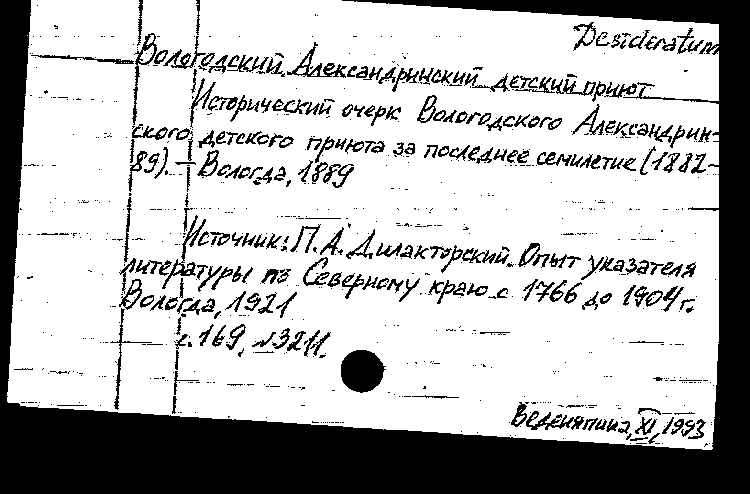 Desideratum
Вологодский Александринский детский приют
Исторический очерк Вологодского Александрин-
ского детского приюта за последнее семилетие (1882-
89). - Вологда, 1889
Источник: П. А. Дилакторский. Опыт указателя
литературы по Северному краю с 1766 до 1904 г.
Вологда, 1921
с. 169, №3211.
Веденяпина, XI, 1993